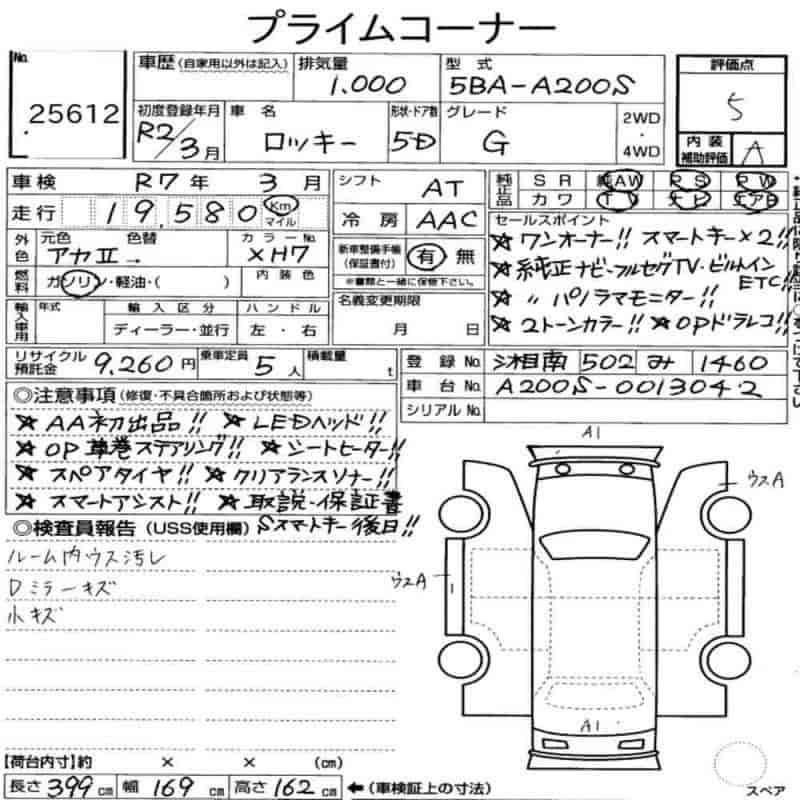 プライムコーナー
No. 25612
車歴 (自家用以外は記入) 排気量 1.000 型式 5BA-A200S 評価点 5
初度登録年月 R2/3月 車名 ロッキー 形状・ドア数 5D グレード G 2WD・4WD 内装補助評価 A
車検 R7年 3月 シフト AT 純正品 SR 純AW PS PW
走行 19,580 Km マイル 冷房 AAC カワ TV ナビ エアB
外色 元色 アカII 色替 → カラーNo. XH7 新車整備手帳(保証書付) 有 無 ※書類と一緒に保管下さい。
燃料 ガソリン・軽油・( ) 内装色
輸入車用 年式 輸入区分 ディーラー・並行 ハンドル 左・右 名義変更期限 月 日
セールスポイント
★ワンオーナー!! スマートキー×2!!
★純正ナビ・フルセグTV・ビルトインETC!!
★〃パノラマモニター!!
★2トーンカラー!! ★OPドラレコ!!
リサイクル預託金 9,260円 乗車定員 5人 積載量 t 登録No. 湘南 502 み 1460
車台No. A200S-0013042
シリアルNo.
◎注意事項 (修復・不具合箇所および状態等)
★AA初出品!! ★LEDヘッド!!
★OP革巻ステアリング!! ★シートヒーター!!
★スペアタイヤ!! ★クリアランスソナー!!
★スマートアシスト!! ★取説・保証書
◎検査員報告 (USS使用欄) Sスマートキー後日!!
ルーム内ウス汚レ
Dミラーキズ
小キズ
A1
ウスA
ウスA
A1
スペア
【荷台内寸】約 × × (cm)
長さ 399 cm 幅 169 cm 高さ 162 cm ←(車検証上の寸法)